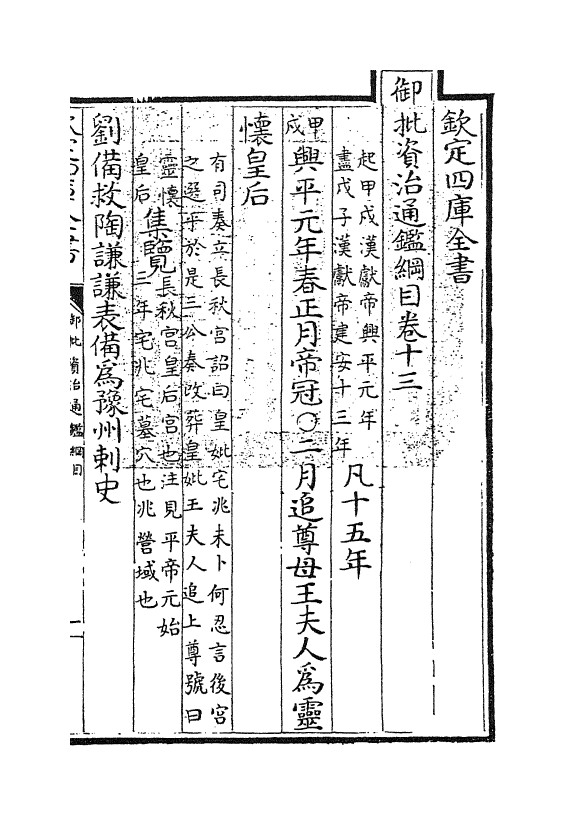 欽定四庫全書
御批資治通鑑綱目卷十三
起甲戌漢獻帝興平元年
盡戊子漢獻帝建安十三年
凡十五年
甲戌
興平元年春正月帝冠〇二月追尊母王夫人為靈
懷皇后
有司奏立長秋宮詔曰皇妣宅兆未卜何忍言後宮
之選乎於是三公奏改葬皇妣王夫人追上尊號曰
靈懷
皇后
集覽
長秋宮皇后宮也注見平帝元始
三年宅兆宅墓穴也兆營域也
劉備救陶謙謙表備為豫州刺史
御批資治通鑑綱目
一